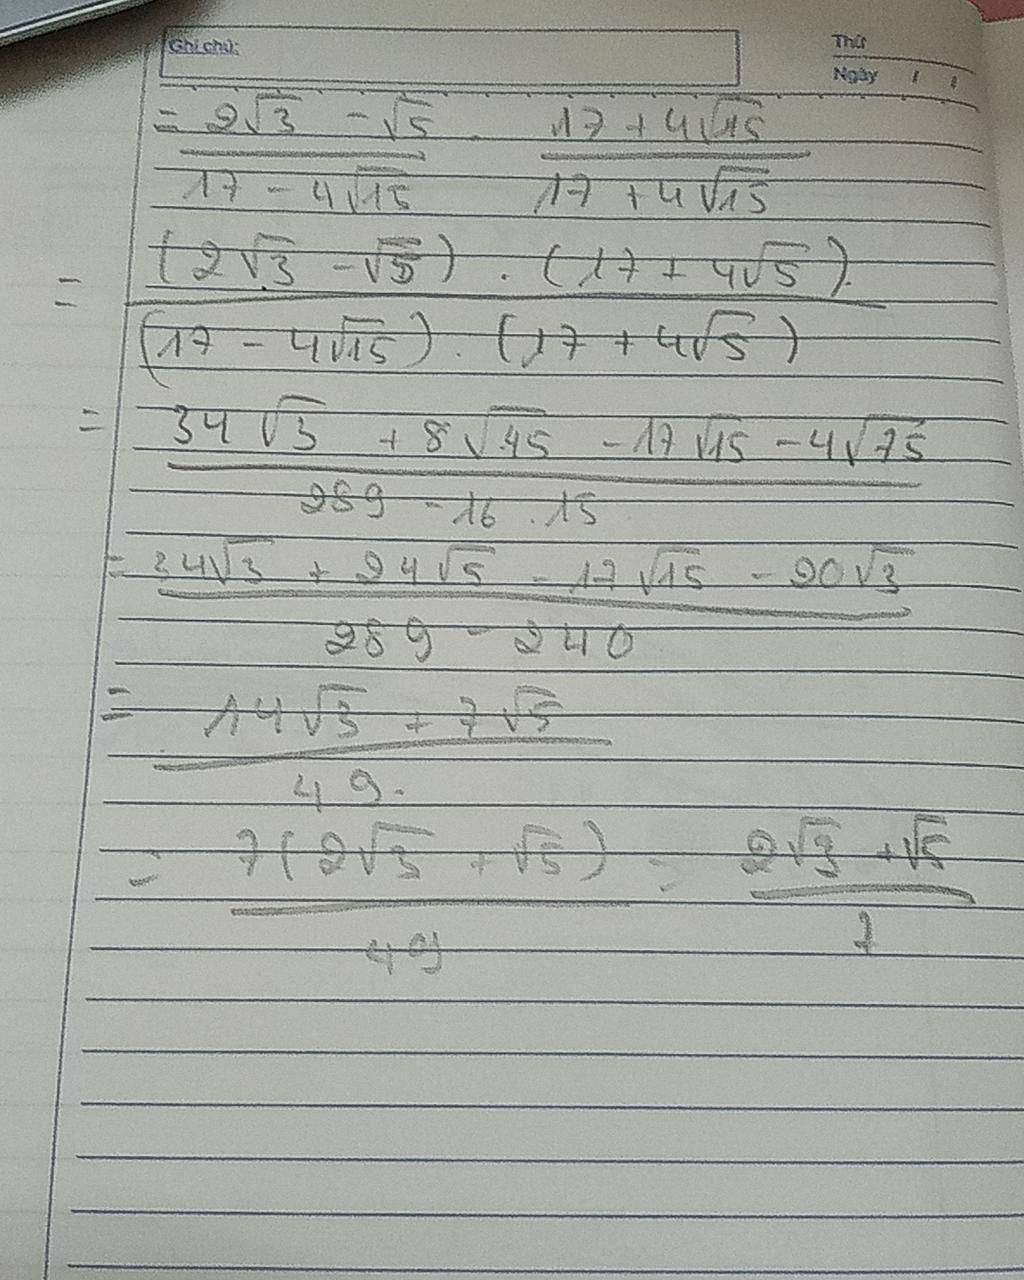 Ghi chú:
Thứ
Ngày / /
= 2√3 - √5 . 17 + 4√15
17 - 4√15 17 + 4√15
= (2√3 - √5) . (17 + 4√5).
(17 - 4√15) . (17 + 4√5)
= 34√3 + 8√45 - 17√15 - 4√75
289 - 16 . 15
= 34√3 + 24√5 - 17√15 - 20√3
289 - 240
= 14√3 + 7√5
49.
= 7(2√3 + √5) = 2√3 + √5
49 7